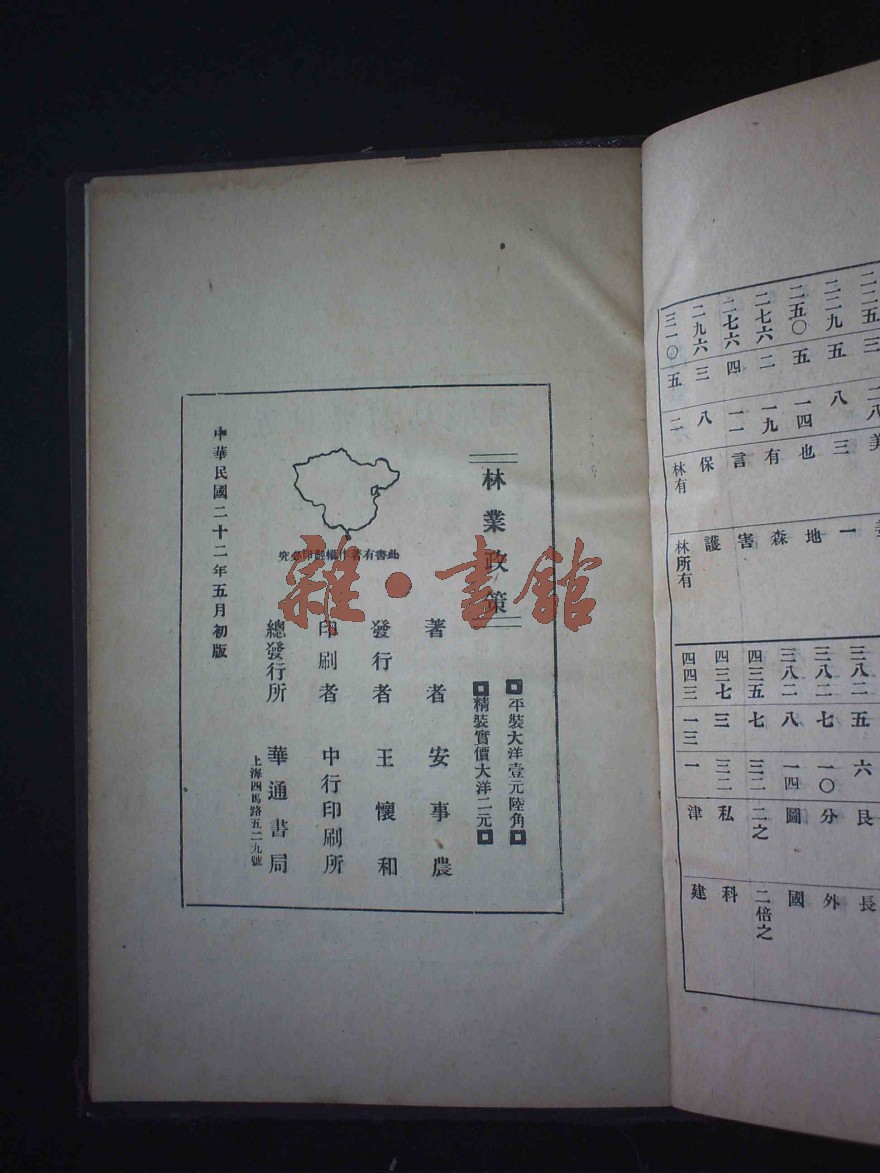 二二五 三 二八 美
二二九 五 八 三 一
二五〇 五 一四 也 地
二七六 二 一九 有 森
二七六 四 一一 言 害
二九六 三 八 保 護
三一〇 五 二 林有 林所有
三八二 五 六 艮 長
三八二 七 一〇 分 外
三八二 八 一四 圖 國
四三五 七 三二 二之 二倍之
四三七 三 三二 私 科
四四三 一三 一 津 建
林業政策
平裝大洋壹元陸角
精裝實價大洋二元
著者 安事農
發行者 王懷和
此書有著作權翻印必究
印刷者 中行印刷所
總發行所 華通書局
上海四馬路五二九號
中華民國二十二年五月初版
雜·書館